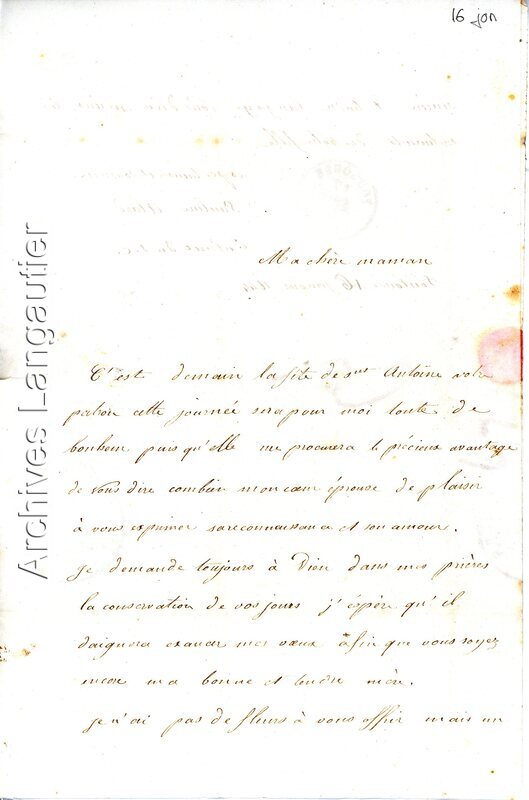 16 jan
Ma chère maman
Toulouse 16
C'est demain la fête de st Antoine votre
patron cette journée sera pour moi toute de
bonheur puis qu'elle me procurera le précieux avantage
de vous dire combien mon cœur éprouve de plaisir
à vous exprimer sa reconnaissance et son amour.
Je demande toujours à Dieu dans mes prières
la conservation de vos jours j'éspère qu'il
daignera exaucer mes vœux afin que vous soyez
encore ma bonne et tendre mère.
Je n'ai pas de fleurs à vous offrir mais un
Archives Langautier